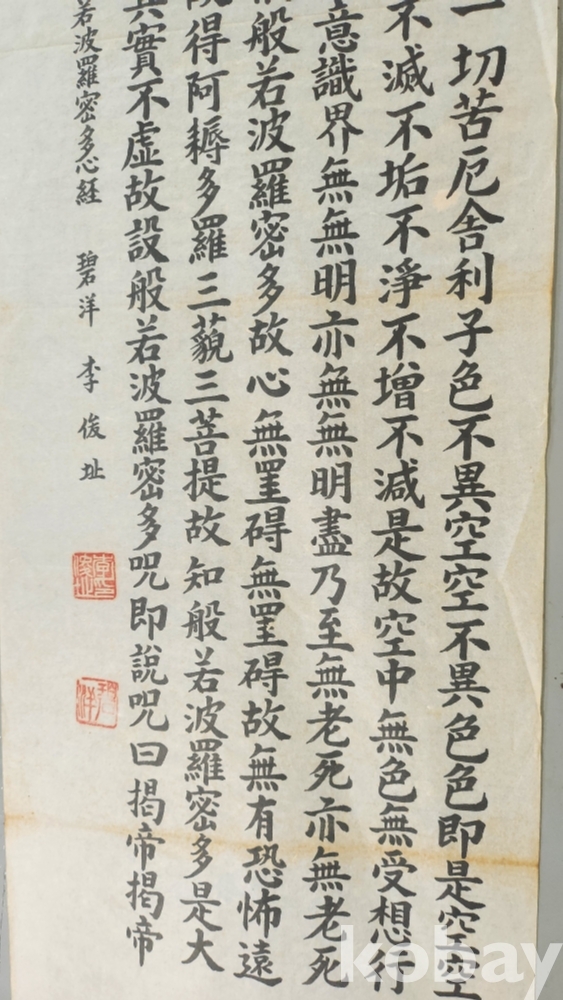 一切苦厄舍利子色不異空空不異色色即是空空
不滅不垢不淨不增不減是故空中無色無受想行
意識界無無明亦無無明盡乃至無老死亦無老死
般若波羅密多故心無罣碍無罣碍故無有恐怖遠
故得阿耨多羅三藐三菩提故知般若波羅密多是大
真實不虛故設般若波羅密多呪即說呪曰揭帝揭帝
若波羅密多心経 碧洋 李俊址
kobay